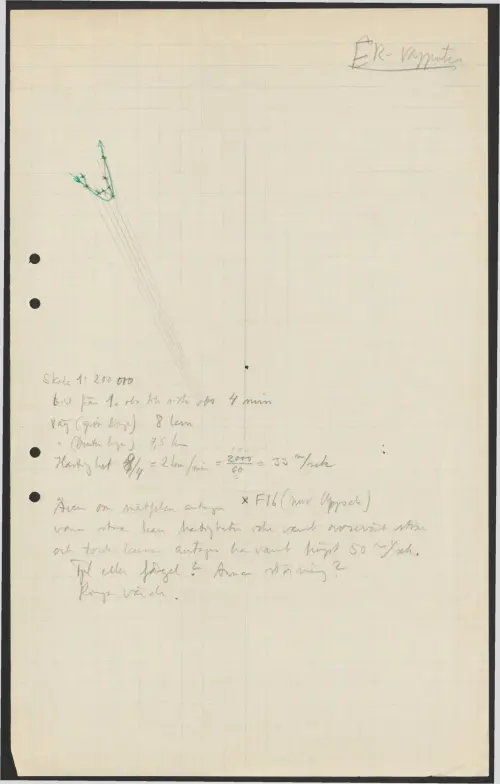 ER-rapporter
Skala 1:200 000
Tid från 1. obs till sista obs 4 min
Väg (grön linje) 8 km
" ( linje) 8,5 km
Hastighet 8/4 = 2 km/min = 2000/60 = 33 m/sek
× F16 (nuv Uppsala)
Även om mätfelen antagas
vara stora kan hastigheten icke varit avsevärt större
och torde kunna antagas ha varit högst 50 m/sek.
Fpl eller fågel? Annan störning?